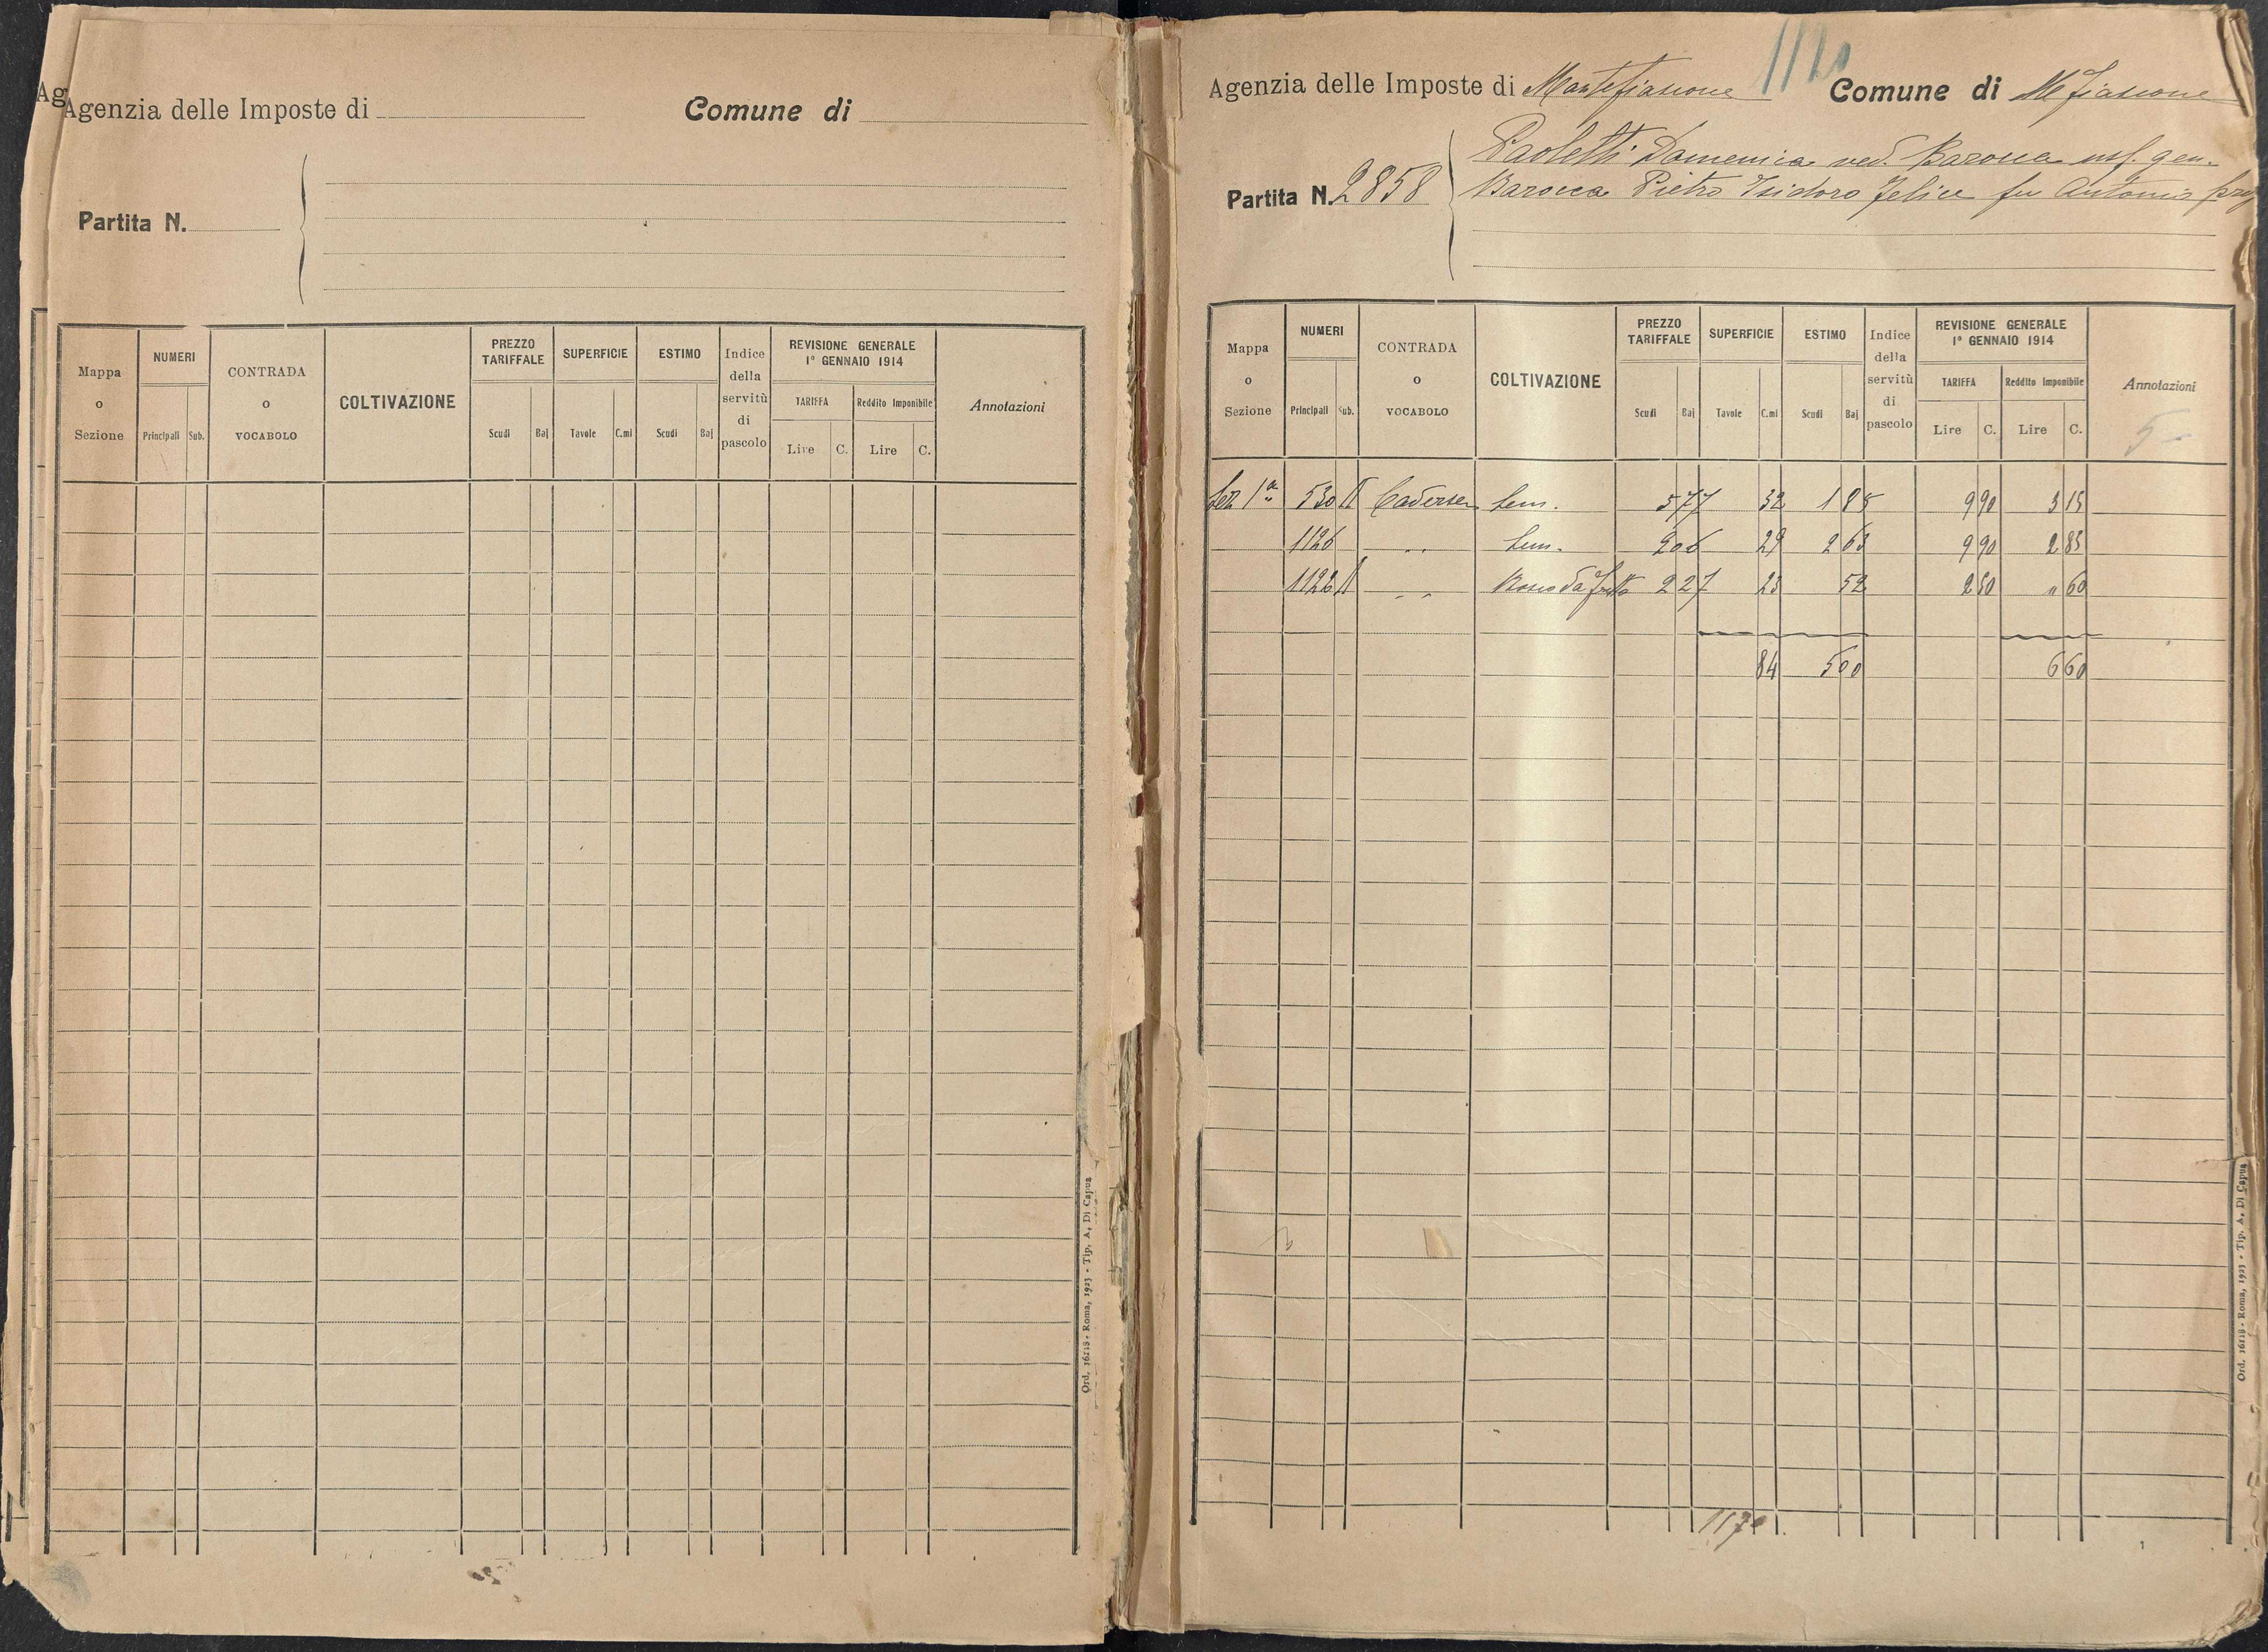 Ag
Agenzia delle Imposte di
Comune di
Partita N.
Mappa o Sezione
NUMERI
Principali Sub.
CONTRADA o VOCABOLO
COLTIVAZIONE
PREZZO TARIFFALE
Scudi Baj
SUPERFICIE
Tavole C.mi
ESTIMO
Scudi Baj
Indice della servitù di pascolo
REVISIONE GENERALE
1° GENNAIO 1914
TARIFFA
Lire C.
Reddito Imponibile
Lire C.
Annotazioni
Ord. 16118 - Roma, 1923 - Tip. A. Di Capua
1120
Agenzia delle Imposte di Montefiascone
Comune di M Fiascone
Partita N. 2858
Paoletti Domenica ved. Barocca usf. gen.
Barocca Pietro Isidoro Felice fu Antonio prop
Mappa o Sezione
NUMERI
Principali Sub.
CONTRADA o VOCABOLO
COLTIVAZIONE
PREZZO TARIFFALE
Scudi Baj
SUPERFICIE
Tavole C.mi
ESTIMO
Scudi Baj
Indice della servitù di pascolo
REVISIONE GENERALE
1° GENNAIO 1914
TARIFFA
Lire C.
Reddito Imponibile
Lire C.
Annotazioni
5
Sez 1a 530 Sem. 5 77 32 1 85 9 90 3 15
1126 " " Sem. 9 06 29 2 63 9 90 2 85
1122 " " Bosco da frutto 2 27 23 52 2 50 " 60
84 5 00 6 60
1170
Ord. 16118 - Roma, 1923 - Tip. A. Di Capua